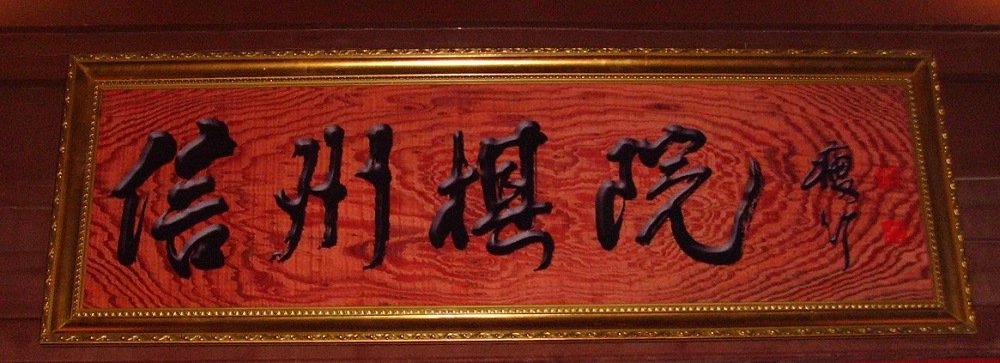 信州棋院
瘦竹